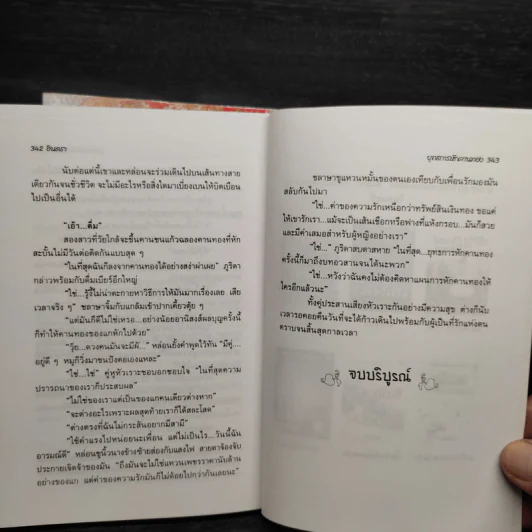 342 อินตรา
นับต่อแต่นี้เขาและหล่อนจะร่วมเดินไปบนเส้นทางสาย
เดียวกันจนชั่วชีวิต จะไม่มีอะไรหรือสิ่งใดมาเบี่ยงเบนให้บิดเบือน
ไปเป็นอื่นได้
“เอ้า...ดื่ม”
สองสาวที่วัยใกล้จะขึ้นคานชนแก้วฉลองคานทองที่หัก
สะบั้นไม่มีวันต่อติดกันแบบสุด ๆ
“ในที่สุดฉันก็ลงจากคานทองได้อย่างสง่าผ่าเผย” ภูริดา
กล่าวพร้อมกับดื่มเบียร์อึกใหญ่
“ใช่...รู้งี้ไม่น่าตะกายหาวิธีการให้มันมากเรื่องเลย เสีย
เวลาจริง ๆ” ชลาษาจิ้มกับแกล้มเข้าปากเคี้ยวตุ้ย ๆ
“แต่มันก็ดีไม่ใช่เหรอ...อย่างน้อยอานิสงส์ผลบุญครั้งนี้
ก็ทำให้คานทองของแกหักไปด้วย”
“วุ้ย...ดวงคนมันจะมีผั...” หล่อนยั้งคำพูดไว้ทัน “มีคู่....
อยู่ดี ๆ หมูก็วิ่งมาชนปังตอเองแหละ”
“ใช่...ใช่” คู่หูหัวเราะชอบอกชอบใจ “ในที่สุดความ
ปรารถนาของเราก็ประสบผล”
“ไม่ใช่ของเราแต่เป็นของแกคนเดียวต่างหาก”
“จะต่างอะไรเพราะผลสุดท้ายเราก็ได้สละโสด”
“ต่างตรงที่ฉันไม่กระสันอยากมีสามี”
“ใช้คำแรงไปหน่อยนะเพื่อน แต่ไม่เป็นไร...วันนี้ฉัน
อารมณ์ดี” หล่อนชูนิ้วนางข้างซ้ายส่องกับแสงไฟ สายตาจ้องจับ
ประกายเจิดจ้าของมัน “ถึงมันจะไม่ใช่แหวนเพชรราคานับล้าน
อย่างของแก แต่ค่าของความรักมันก็ไม่ด้อยไปกว่ากันเลยนะ”
ยุทธการหักคานทอง 343
ชลาษาชูแหวนหมั้นของตนเองเทียบกับเพื่อนรักมองมัน
สลับกันไปมา
“ใช่...ค่าของความรักเหนือกว่าทรัพย์สินเงินทอง ขอแค่
ให้เขารักเรา...แม้จะเป็นเส้นเชือกหรือฟางที่แห้งกรอบ...มันก็สวย
และมีค่าเสมอสำหรับผู้หญิงอย่างเรา”
“ใช่...” ภูริดาสบตาสหาย “ในที่สุด...ยุทธการหักคานทอง
ครั้งนี้ก็มาถึงบทอวสานจนได้นะพวก”
“ใช่...หวังว่าฉันคงไม่ต้องคิดหาแผนการหักคานทองให้
ใครอีกแล้วนะ”
ทั้งคู่ประสานเสียงหัวเราะกันอย่างมีความสุข ต่างก็นับ
เวลารอคอยคืนวันที่จะได้ก้าวเดินไปพร้อมกับผู้เป็นที่รักแห่งตน
ตราบจนสิ้นสุดกาลเวลา
จบบริบูรณ์